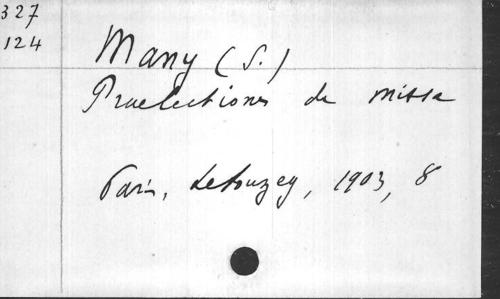 327
124
Many (S.)
Praelectiones de missa
Paris, Letouzey, 1903, 8